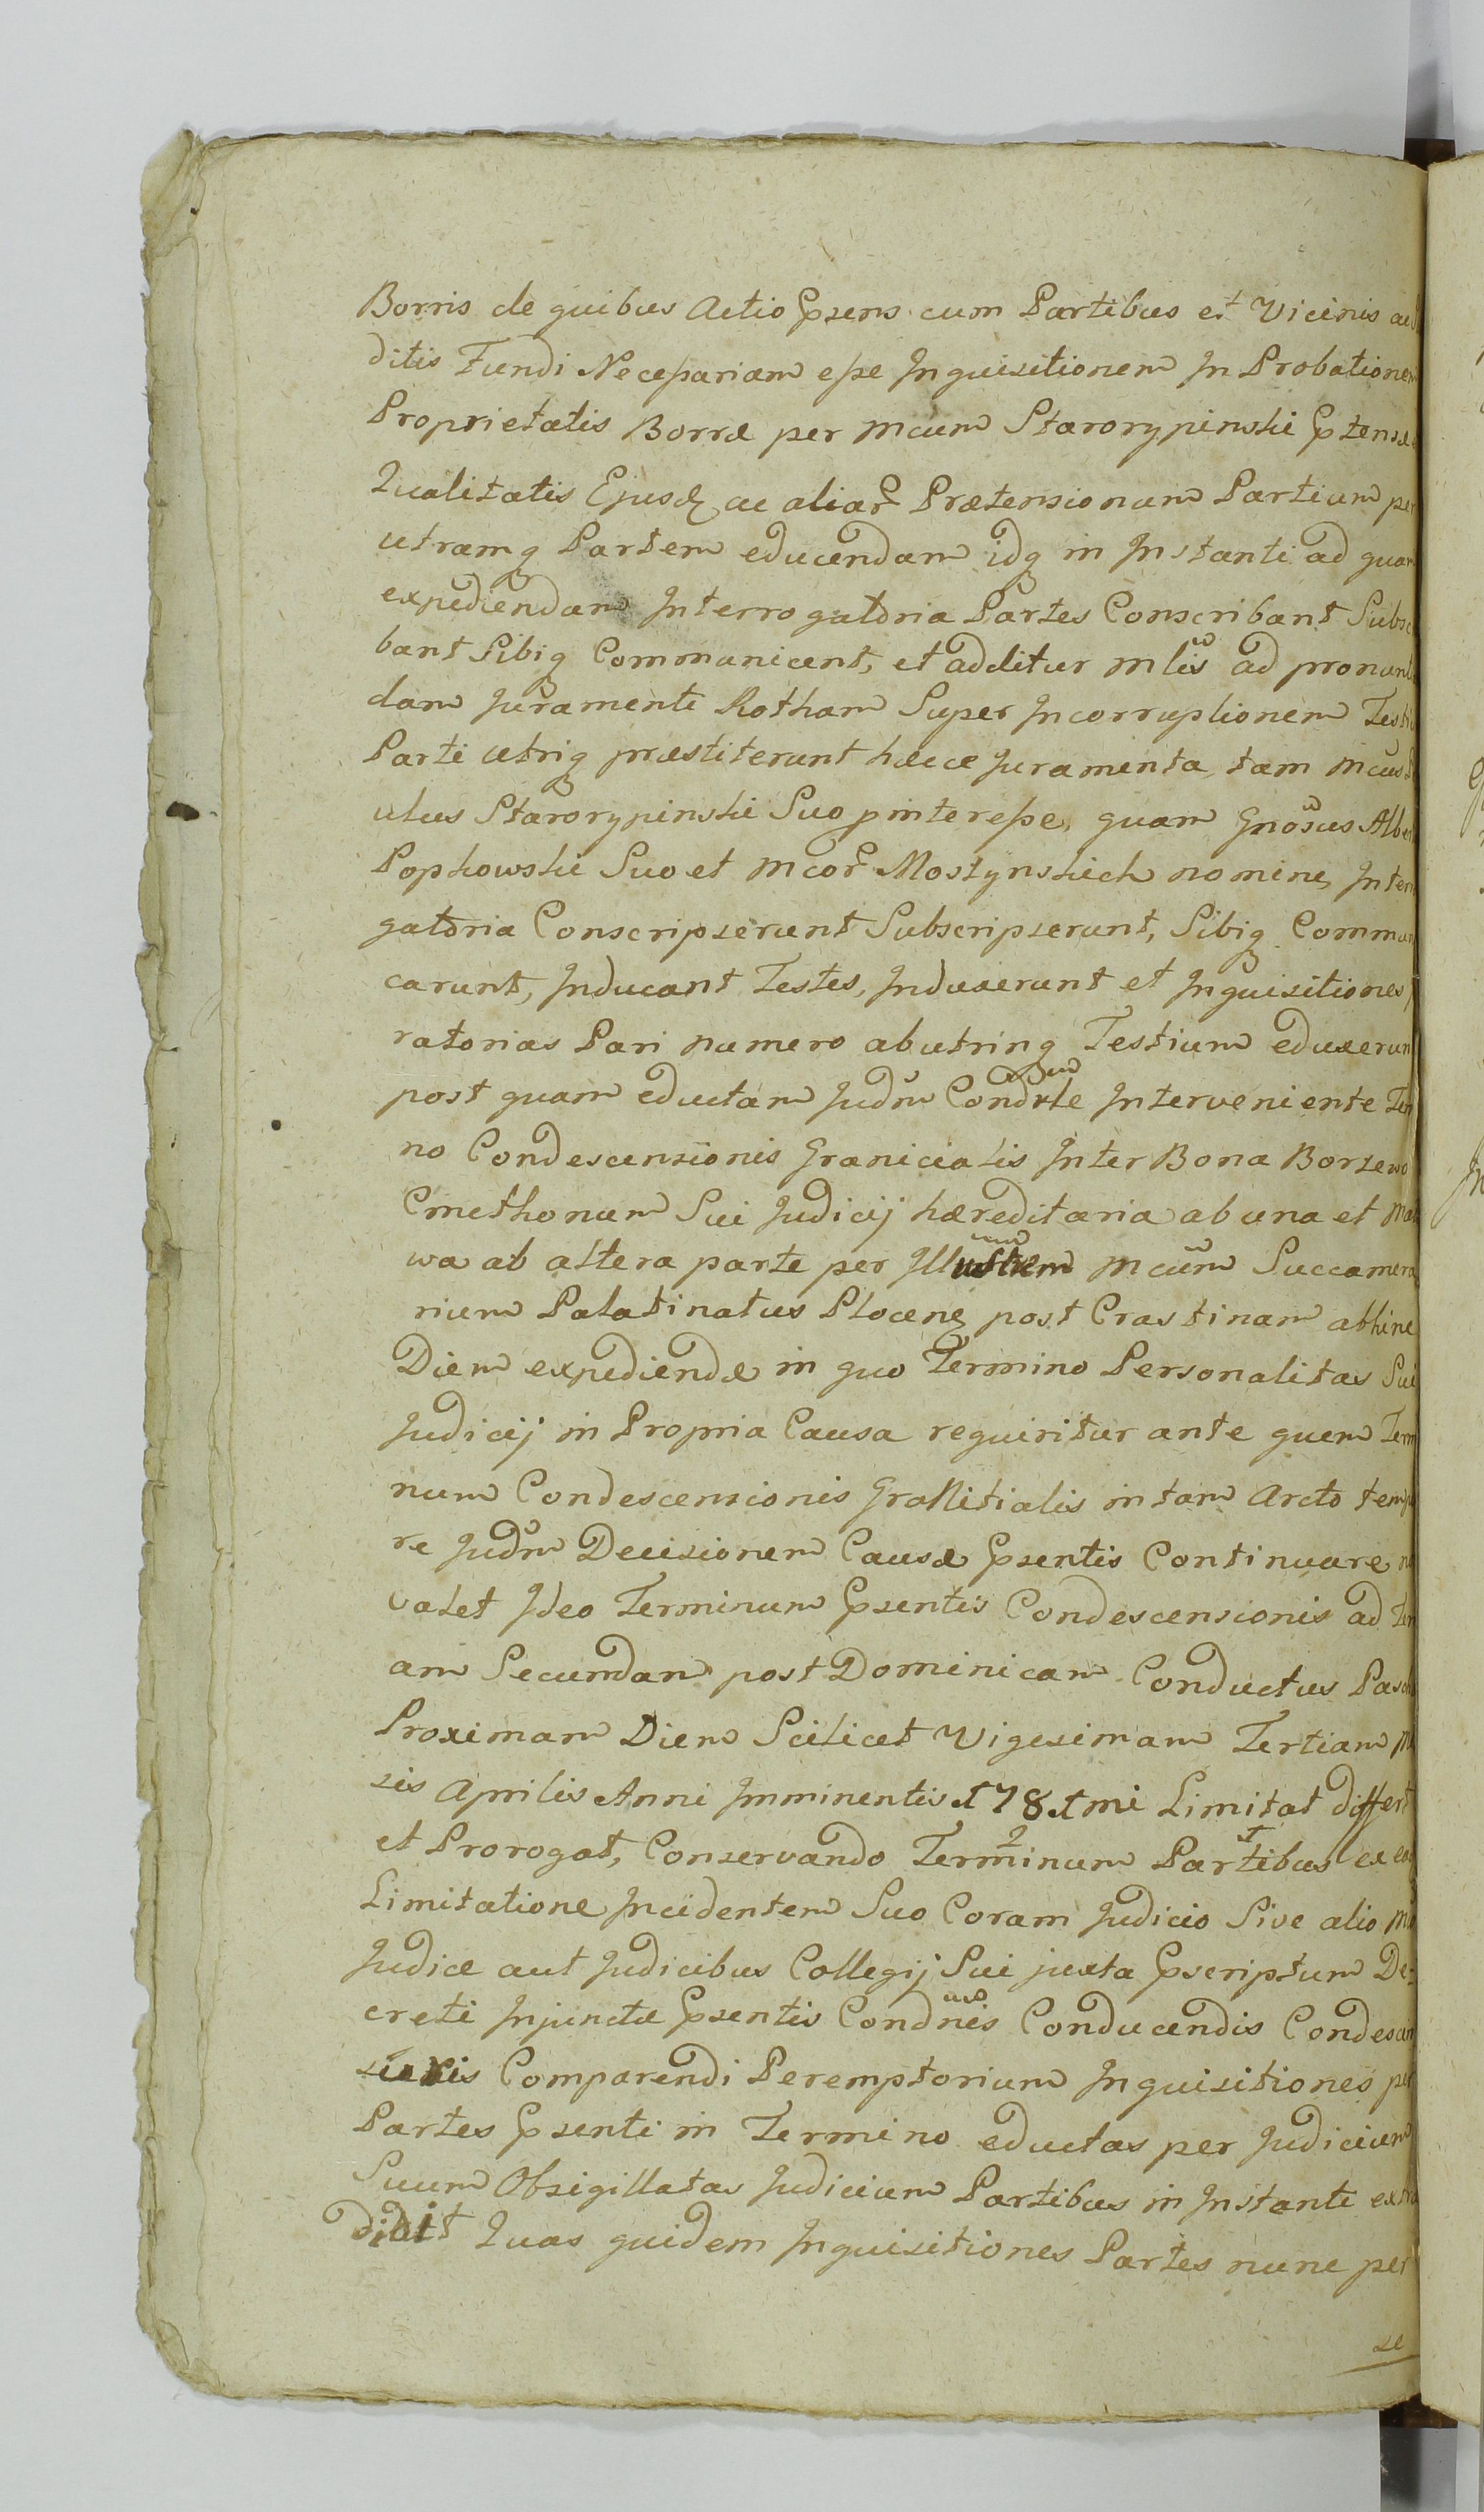 Borris de quibus Actio Psens cum Partibus et Vicinis au
ditis Fundi Necessariam esse Inquisitionem In Probationem
Proprietatis Borræ per Mcum Starorypinski Ptensæ
Qualitatis Ejusd ac aliar Prætensionum Partium per
utramq Partem educendam idq in Instanti ad quam
expediendam Interrogatoria Partes Conscribant Subsc
bant Sibiq Communicent, et additur Mlis ad pronunt
dam Juramenti Rotham Super Incorruptionem Testi
Parti utriq præstiterunt hæcce Juramenta, tam Mcus
ulus Starorypinski Suo pinteresse, quam Gnosus Alber
Popkowski Suo et Mcor Mostynskich nomine, Inter
gatoria Conscripserunt Subscripserunt, Sibiq Commun
carunt, Inducant Testes, Induxerunt et Inquisitiones
ratorias Pari numero abutrinq Testium eduxerunt
post quam eductam Judm Interveniente Ter
no Condescensionis Granicialis Inter Bona Borzewo
Cmethonum Sui Judicij hæreditaria ab una et Ma
wa ab altera parte per Illustrem Mcum Succamera
rium Palatinatus Plocen, post Crastinam abhinc
Diem expediendæ in quo Termino Personalitas Sui
Judicij in Propria Causa requiritur ante quem Term
num Condescensionis Granitialis in tam Arcto temp
re Judm Decisionem Causæ Psentis Continuare n
valet Ideo Terminum Psentis Condescensionis ad Fer
am Secundam post Dominicam Conductus Pasch
Proximam Diem Scilicet Vigesimam Tertiam M
sis Aprilis Anni Imminentis 1781mi Limitat differt
et Prorogat, Conservando Terminum Partibus ex ea
Limitatione Incidentem Suo Coram Judicio Sive alio M
Judice aut Judicibus Collegij Sui juxta Pscriptum De:
creti Injunctæ Psentis Condnis Conducendis Condescen
sionis Comparendi Peremptorium Inquisitiones per
Partes Psenti in Termino eductas per Judicium
Suum Obsigillatas Judicium Partibus in Instanti extra
didit Quas quidem Inquisitiones Partes nunc per
se